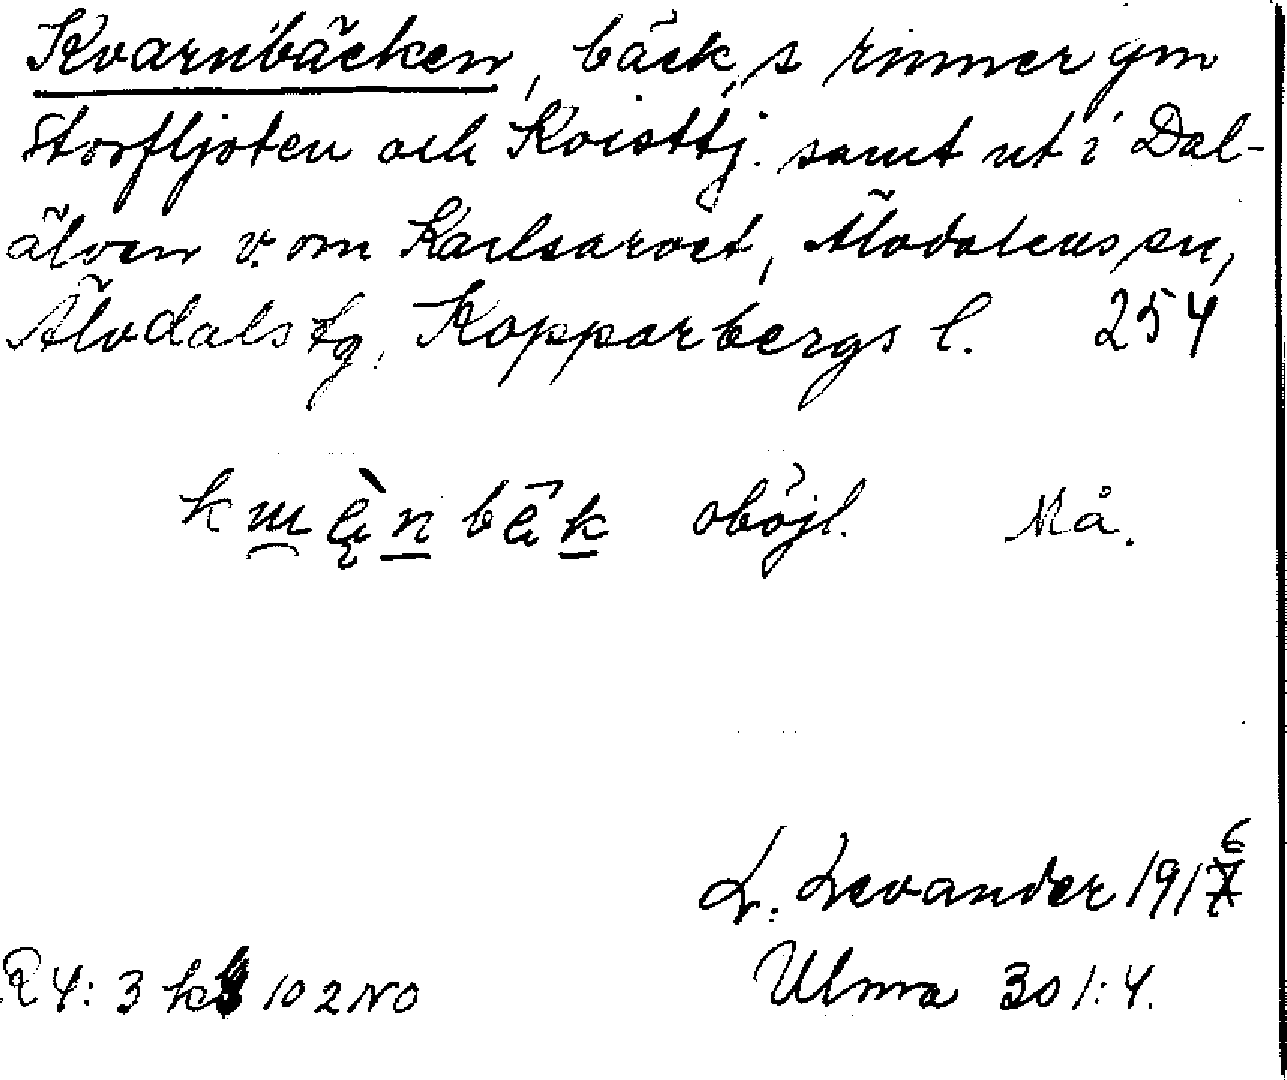 Kvarnbäcken, bäck, s rinner gm
Storfljoten och Kvisttj. samt ut i Dal-
älven v. om Karlsarvet, Älvdalens sn,
Älvdals tg, Kopparbergs l. 254
oböjl. Må.
L. Levander 1916
R 4: 3 k 10 2 NO Ulma 301:4.